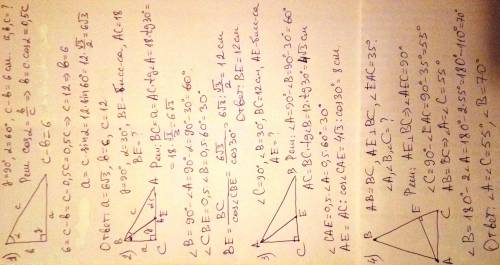 1) γ=90°, α=60°, c-b=6 см. a,b,c=?
Реш: cosα = b/c ⇒ b = c·cosα = 0,5c
6 = c-b = c-0,5c = 0,5c ⇒ c=12 ⇒ b=6
a = c·sinα = 12·sin60° = 12·√3/2 = 6√3
Ответ: a=6√3, b=6, c=12
2) γ=90°, α=30°, BE-бис-са, AC=18
BE=?
Реш: BC=a=AC·tgA=18·tg30°=
=18·√3/3=6√3
∠B=90°-∠A=90°-α=90°-30°=60°
∠CBE=0,5∠B=0,5·60°=30°
BE = BC/cos∠CBE = 6√3/cos30° = 6√3:√3/2 = 12 см
Ответ: BE=12 см
3) ∠C=90°, ∠B=30°, BC=12 см, AE-бис-са
AE=?
Реш: ∠A=90°-∠B=90°-30°=60°
AC=BC·tgB=12·tg30°=4√3 см
∠CAE=0,5∠A=0,5·60°=30°
AE=AC:cos∠CAE=4√3:cos30°=8 см.
4) AB=BC, AE⊥BC, ∠EAC=35°
∠A,∠B,∠C=?
Реш: AE⊥BC ⇒ ∠AEC=90°
∠C=90°-∠EAC=90°-35°=55°
AB=BC ⇒ ∠A=∠C=55°
∠B=180°-2∠A=180°-2·55°=180°-110°=70°
Ответ: ∠A=∠C=55°, ∠B=70°
A
B
C
E
a
b
c
c-b=6